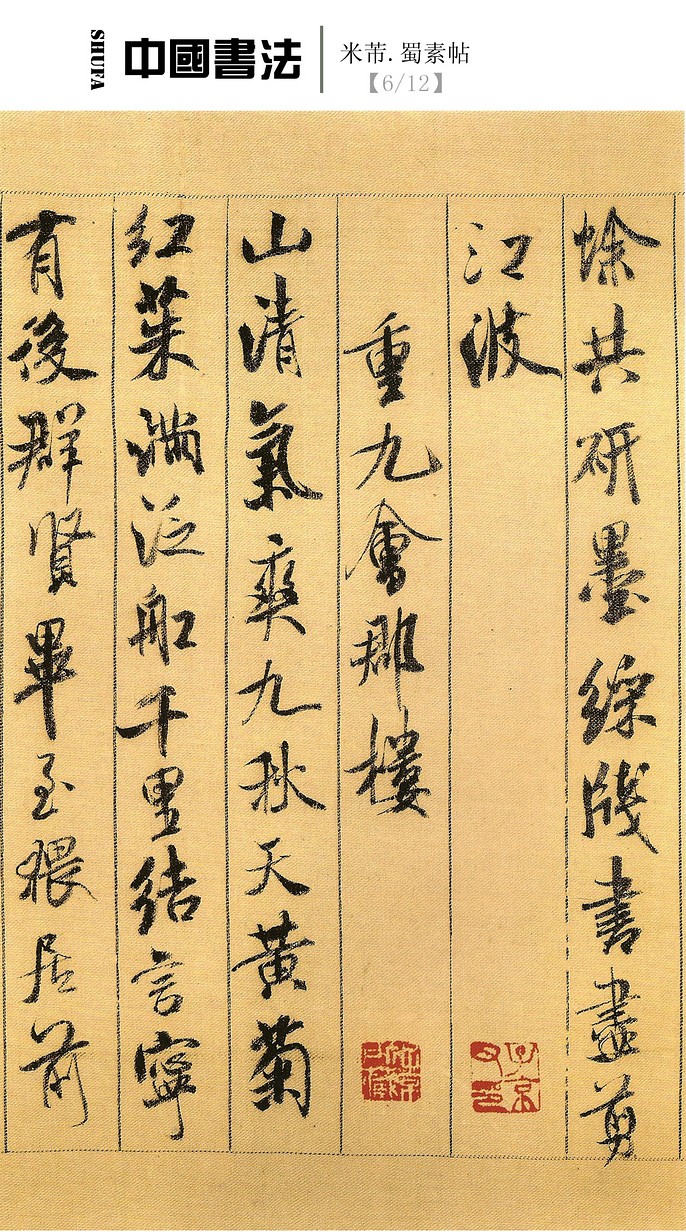 SHUFA
中國書法
米芾.蜀素帖
【6/12】
蜍共研墨綵牋書盡剪
江波
重九會郡樓
山清氣爽九秋天黄菊
紅茱滿泛船千里結言寧
有後群賢畢至猥居前